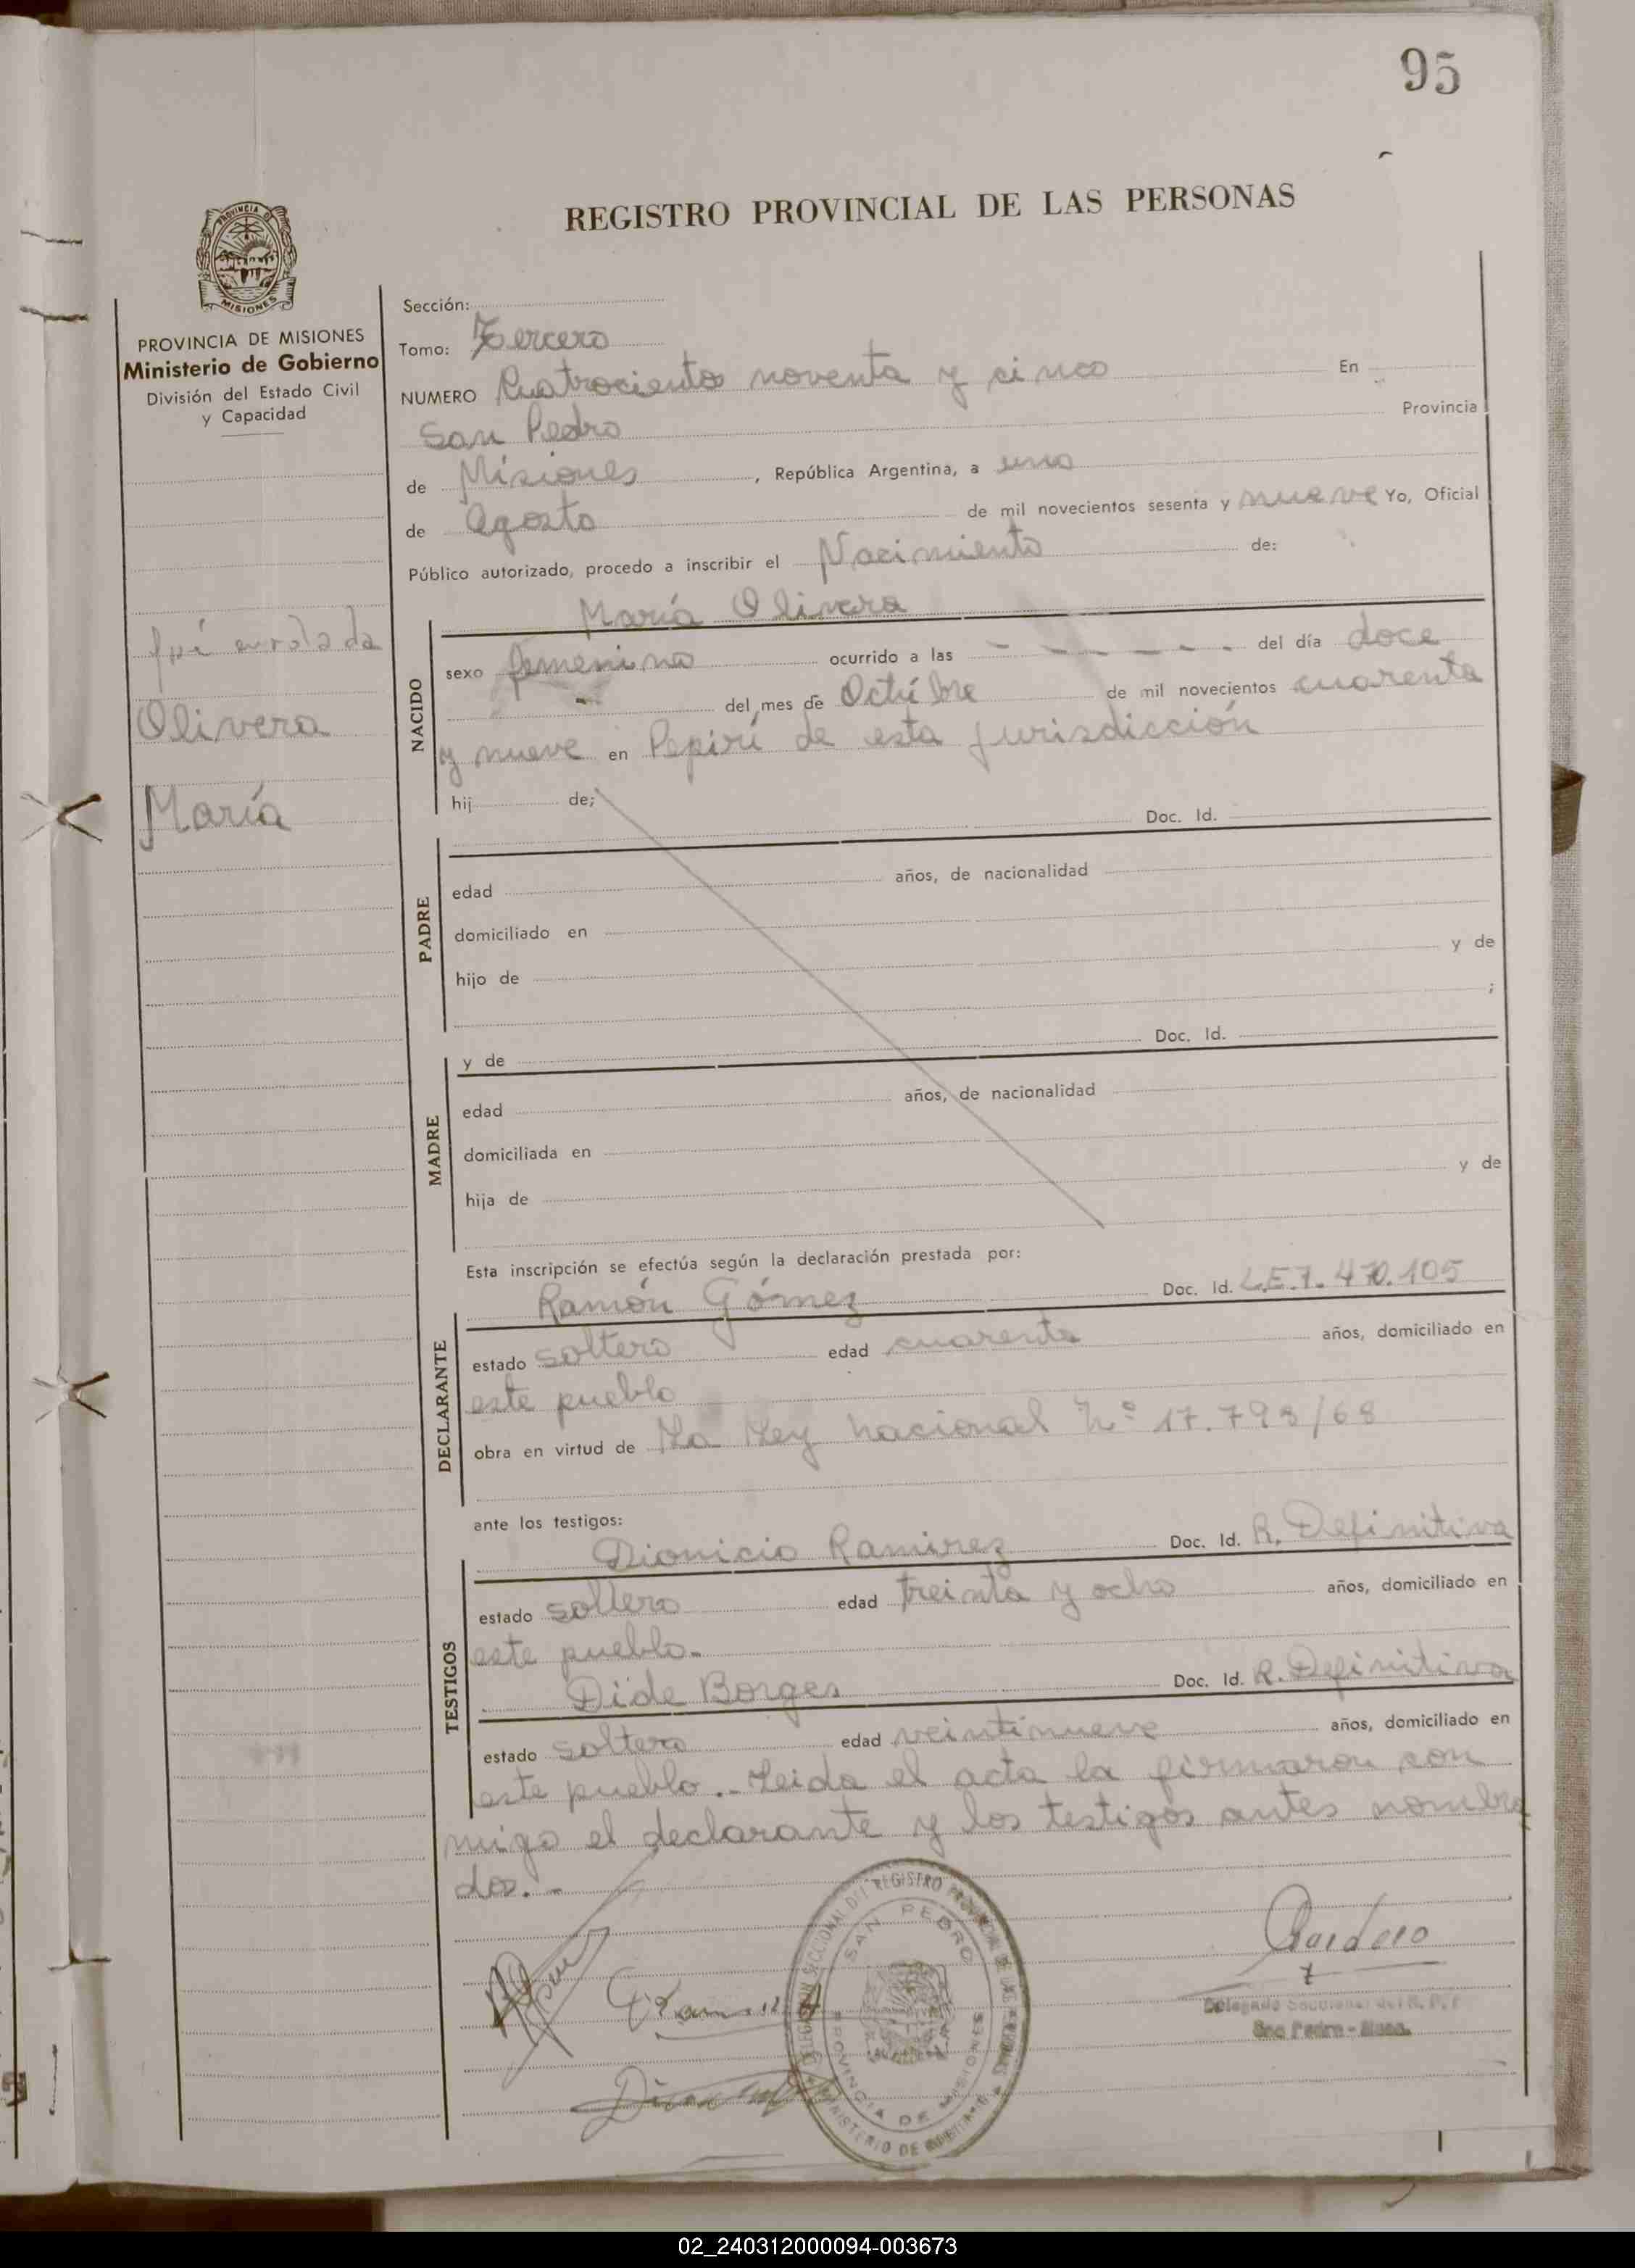 95
REGISTRO PROVINCIAL DE LAS PERSONAS
PROVINCIA DE MISIONES
Ministerio de Gobierno
División del Estado Civil
y Capacidad
fué enrolada
Olivera
María
Sección:
Tomo: Tercero
NUMERO Cuatrocientos noventa y cinco En
San Pedro Provincia
de Misiones, República Argentina, a uno
de Agosto de mil novecientos sesenta y nueve Yo, Oficial
Público autorizado, procedo a inscribir el Nacimiento de:
María Olivera
NACIDO
sexo femenino ocurrido a las - - - - - - del día doce
- del mes de Octubre de mil novecientos cuarenta
y nueve en Pepirí de esta jurisdicción
hij de;
Doc. Id.
PADRE
edad años, de nacionalidad
domiciliado en
hijo de y de
;
y de Doc. Id.
MADRE
edad años, de nacionalidad
domiciliada en
hija de y de
Esta inscripción se efectúa según la declaración prestada por:
Ramón Gómez Doc. Id. L.E.7.470.105
DECLARANTE
estado soltero edad cuarenta años, domiciliado en
este pueblo
obra en virtud de La Ley Nacional Nº 17.793/68
ante los testigos:
Dionicio Ramirez Doc. Id. R. Definitiva
TESTIGOS
estado soltero edad treinta y ocho años, domiciliado en
este pueblo.
Dide Borges Doc. Id. R. Definitiva
estado soltero edad veintinueve años, domiciliado en
este pueblo.- Leida el acta la firmaron con
migo el declarante y los testigos antes nombra
dos.-
DELEGACION SECCIONAL DEL REGISTRO PROVINCIAL DE LAS PERSONAS
SAN PEDRO
PROVINCIA DE MISIONES
MINISTERIO DE GOBIERNO
Delegado Seccional del R. P. P.
San Pedro - Mnes.
02_240312000094-003673